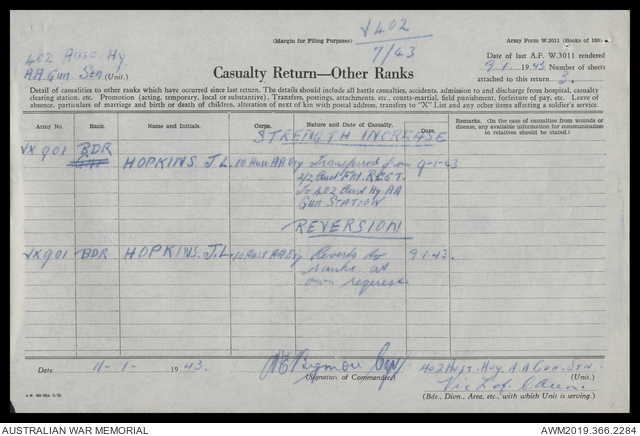 √402
7/43
(Margin for Filing Purposes)
Army Form W.3011 (Books of 100)
402 Aust. Hy.
A.A. Gun Stn (Unit.)
Date of last A.F. W.3011 rendered
9.1. 1943. Number of sheets
attached to this return 3.
Casualty Return—Other Ranks
Detail of casualties to other ranks which have occurred since last return. The details should include all battle casualties, accidents, admission to and discharge from hospital, casualty
clearing station, etc. Promotion (acting, temporary, local or substantive). Transfers, postings, attachments, etc., courts-martial, field punishment, forfeiture of pay, etc. Leave of
absence, particulars of marriage and birth or death of children, alteration of next of kin with postal address, transfers to "X" List and any other items affecting a soldier's service.
Army No. Rank. Name and Initials. Corps. Nature and Date of Casualty. Date. Remarks. (In the case of casualties from wounds or
disease, any available information for communication
to relatives should be stated.)
STRENGTH INCREASE
VX901 BDR
HOPKINS J.L. 10 Aust AA Bty Transferred from 9-1-43
2/2 Aust FLD. REGT.
To 402 Aust Hy. AA
GUN STATION
REVERSION
VX901 BDR HOPKINS. J.L. 10 Aust AA Bty Reverts to 9.1.43.
ranks at
own request
Date 11-1- 1943.
(Signature of Commander)
402 Aust. Hvy. A.A. Gun. Stn.
Vic L of C Area.
(Bde., Divn., Area, etc., with which Unit is serving.)
AUSTRALIAN WAR MEMORIAL
AWM2019.366.2284